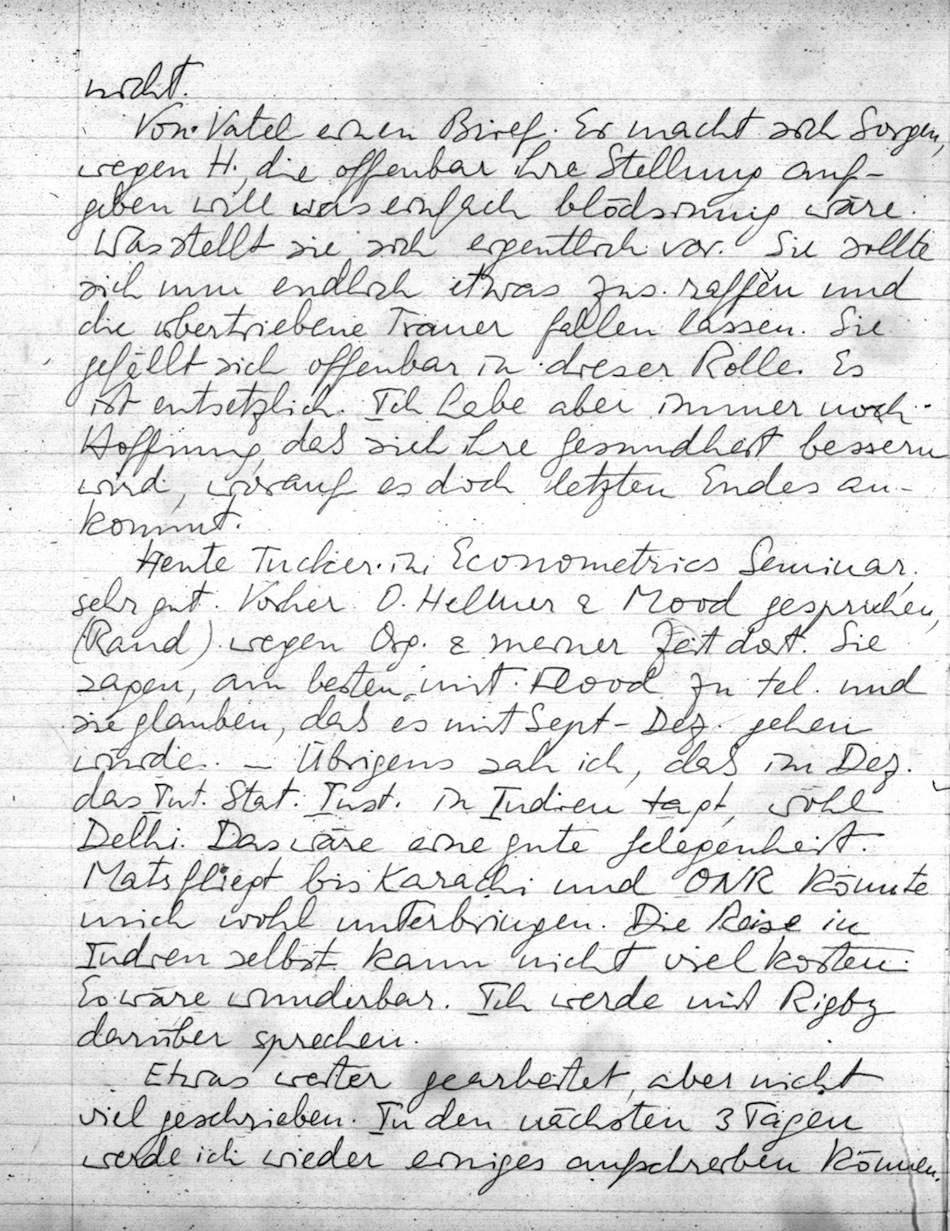 nicht.
Von Vatel einen Brief. Er macht sich Sorgen,
wegen H., die offenbar ihre Stellung auf-
geben will was einfach blödsinnig wäre.
Was stellt sie sich eigentlich vor. Sie sollte
sich nun endlich etwas zus. raffen und
die übertriebene Trauer fallen lassen. Sie
gefällt sich offenbar in dieser Rolle. Es
ist entsetzlich. Ich habe aber immer noch
Hoffnung, daß sich ihre Gesundheit bessern
wird, worauf es doch letzten Endes an-
kommt.
Heute Tucker im Econometrics Seminar,
sehr gut. Vorher O. Helmer & Mood gesprochen,
(Rand) wegen Org. & meiner Zeit dort. Sie
sagen, am besten mit Flood zu tel. und
sie glauben, daß es mit Sept-Dez. gehen
würde. – Übrigens sah ich, daß im Dez.
das Int. Stat. Inst. in Indien tagt, wohl
Delhi. Das wäre eine gute Gelegenheit.
Mats fliegt bis Karachi und ONR könnte
mich wohl unterbringen. Die Reise in
Indien selbst kann nicht viel kosten.
Es wäre wunderbar. Ich werde mit Rigby
darüber sprechen.
Etwas weiter gearbeitet, aber nicht
viel geschrieben. In den nächsten 3 Tagen
werde ich wieder einiges aufschreiben können.